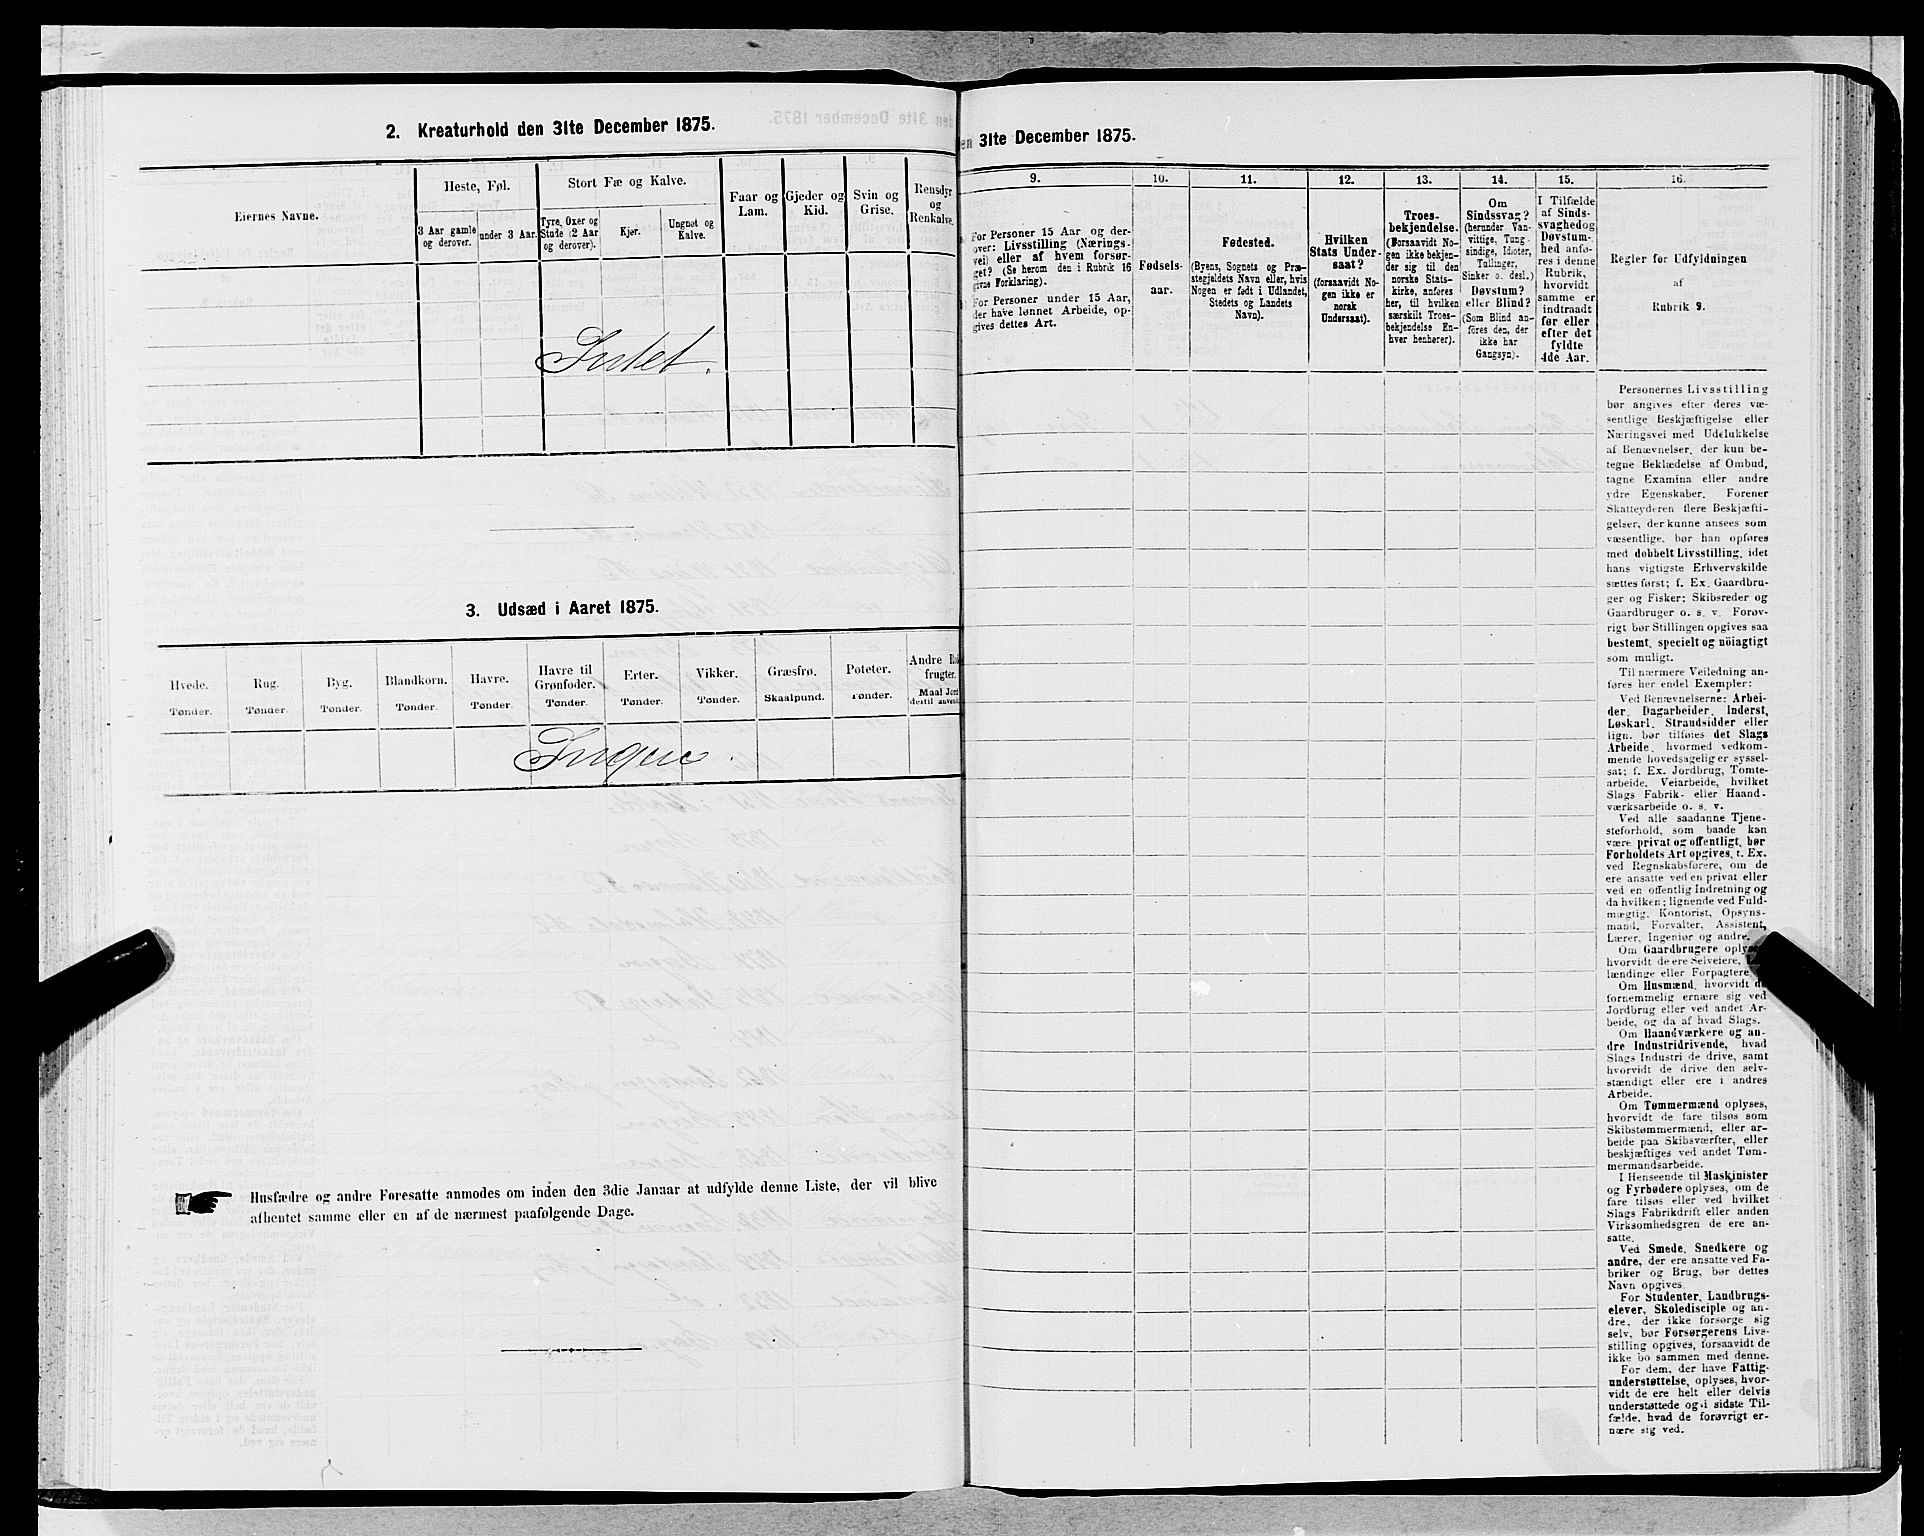 2. Kreaturhold den 31te December 1875.
Eiernes Navne.
Heste, Føl.
3 Aar gamle
og derover.
under 3 Aar.
Stort Fæ og Kalve.
Tyre, Oxer og
Stude (2 Aar
og derover).
Kjer.
Ungnøt og
Kalve.
Faar og
Lam.
Gjeder og
Kid.
Svin og
Grise.
Rensdyr
og
Renkalve.
Intet.
3. Udsæd i Aaret 1875.
Hvede.
Tønder.
Rug.
Tønder.
Byg.
Tønder.
Blandkorn.
Tønder.
Havre.
Tønder.
Havre til
Grønfoder.
Tønder.
Erter.
Tønder.
Vikker.
Tønder.
Græsfrø.
Skaalpund.
Poteter.
Tønder.
Andre
frugter.
Maal Jord
destil anvendt
Ingen.
Husfædre og andre Foresatte anmodes om inden den 3die Januar at udfylde denne Liste, der vil blive
afhentet samme eller en af de nærmest paafølgende Dage.
31te December 1875.
9.
For Personer 15 Aar og der-
over: Livsstilling (Nærings-
vei) eller af hvem forsør-
get? (Se herom den i Rubrik 16
givne Forklaring).
For Personer under 15 Aar,
der have lønnet Arbeide, op-
gives dettes Art.
10.
Fødsels-
aar.
11.
Fødested.
(Byens, Sognets og Præ-
stegjeldets Navn eller, hvis
Nogen er født i Udlandet,
Stedets og Landets
Navn).
12.
Hvilken
Stats Under-
saat?
(forsaavidt No-
gen ikke er
norsk
Undersaat).
13.
Troes-
bekjendelse.
(Forsaavidt No-
gen ikke bekjen-
der sig til den
norske Stats-
kirke, anføres
her, til hvilken
særskilt Troes-
bekjendelse En-
hver henhører).
14.
Om
Sindssvag?
(herunder Van-
vittige, Tung-
sindige, Idioter,
Tullinger,
Sinker o. desl.)
Døvstum?
eller Blind?
(Som Blind an-
føres den, der
ikke har
Gangsyn).
15.
I Tilfælde
af Sinds-
svaghed og
Døvstum-
hed anfø-
res i denne
Rubrik,
hvorvidt
samme er
indtraadt
før eller
efter det
fyldte
4de Aar.
16.
Regler for Udfyldningen
af
Rubrik 9.
Personernes Livsstilling
bør angives efter deres væ-
sentlige Beskjæftigelse eller
Næringsvei med Udelukkelse
af Benævnelser, der kun be-
tegne Beklædelse af Ombud,
tagne Examina eller andre
ydre Egenskaber. Forener
Skatteyderen flere Beskjæfti-
gelser, der kunne ansees som
væsentlige, bør han opføres
med dobbelt Livsstilling, idet
hans vigtigste Erhvervskilde
sættes først; f. Ex. Gaardbru-
ger og Fisker; Skibsreder og
Gaardbruger o. s. v. Forøv-
rigt bør Stillingen opgives saa
bestemt, specielt og nöiagtigt
som muligt.
Til nærmere Veiledning an-
føres her endel Exempler:
Ved Benævnelserne: Arbei-
der, Dagarbeider, Inderst,
Løskarl, Strandsidder eller
lign. bør tilføies det Slags
Arbeide, hvormed vedkom-
mende hovedsagelig er syssel-
sat; f. Ex. Jordbrug, Tomte-
arbeide, Veiarbeide, hvilket
Slags Fabrik- eller Haand-
værksarbeide o. s. v.
Ved alle saadanne Tjene-
steforhold, som baade kan
være privat og offentligt, bør
Forholdets Art opgives, f. Ex.
ved Regnskabsførere, om de
ere ansatte ved en privat eller
ved en offentlig Indretning og
da hvilken; lignende ved Fuld-
mægtig, Kontorist, Opsyns-
mand, Forvalter, Assistent,
Lærer, Ingeniør og andre.
Om Gaardbrugere oplyses,
hvorvidt de ere Selveiere,
lændinge eller Forpagtere
Om Husmænd, hvorvidt de
fornemmelig ernære sig ved
Jordbrug eller ved andet Ar-
beide, og da af hvad Slags.
Om Haandværkere og an-
dre Industridrivende, hvad
Slags Industri de drive, samt
hvorvidt de drive den selv-
stændigt eller ere i andres
Arbeide.
Om Tømmermænd oplyses,
hvorvidt de fare tilsøs som
Skibstømmermænd, eller ar-
beide paa Skibsværfter, eller
beskjæftiges ved andet Tøm-
mermandsarbeide.
I Henseende til Maskinister
og Fyrbødere oplyses, om de
fare tilsøs eller ved hvilket
Slags Fabrikdrift eller anden
Virksomhedsgren de ere an-
satte.
Ved Smede, Snedkere og
andre, der ere ansatte ved Fa-
briker og Brug, bør dettes
Navn opgives.
For Studenter, Landbrugs-
elever, Skoledisciple og an-
dre, der ikke forsørge sig
selv, bør Forsørgerens Livs-
stilling opgives, forsaavidt de
ikke bo sammen med denne.
For dem, der have Fattig-
understøttelse, oplyses, hvor-
vidt de ere helt eller delvis
understøttede og i sidste Til-
fælde, hvad de forøvrigt er-
nære sig ved.